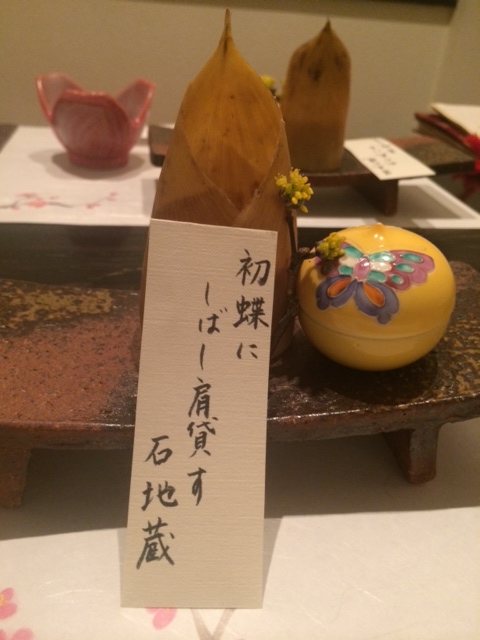 初蝶に
しばし肩貸す
石地蔵